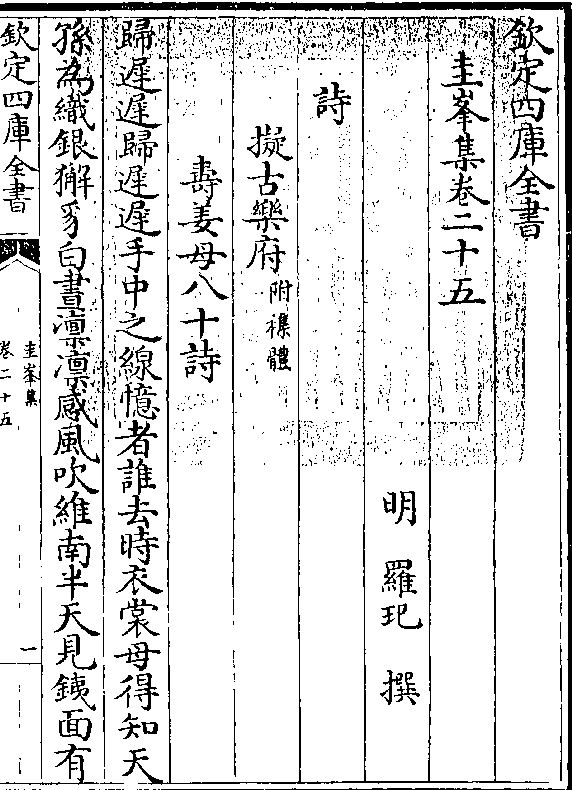 欽定四庫全書
圭峯集卷二十五
明 羅玘 撰
詩
擬古樂府附襍體
壽姜母八十詩
歸遲遲歸遲遲手中之線憶者誰去時衣裳母得知天
孫為織銀獬豸白晝凛凛威風吹維南半天見鐵面有
欽定四庫全書
圭峯集
卷二十五
一